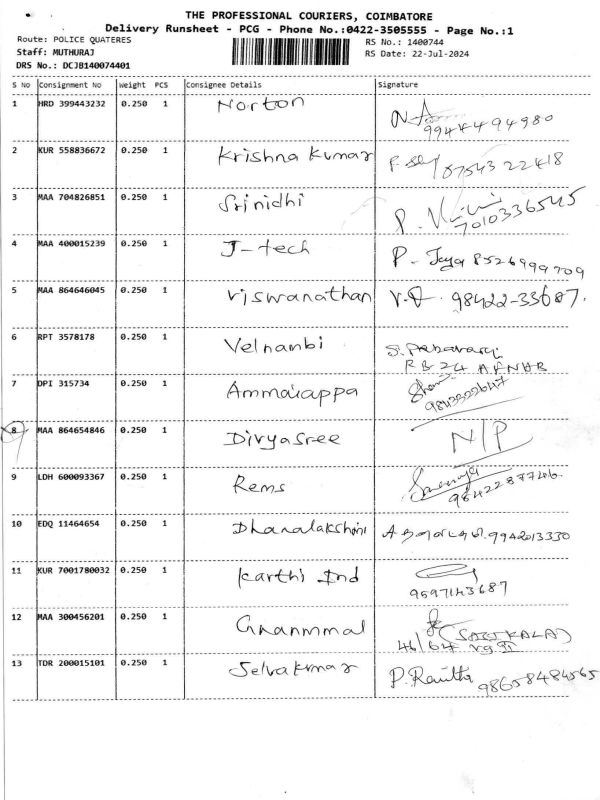 THE PROFESSIONAL COURIERS, COIMBATORE
Delivery Runsheet - PCG - Phone No.:0422-3505555 - Page No.:1
Route: POLICE QUATERES
RS No.: 1400744
Staff: MUTHURAJ
RS Date: 22-Jul-2024
DRS No.: DCJB140074401
S No Consignment No Weight PCS Consignee Details Signature
1 HRD 399443232 0.250 1 Norton
9944494980
2 KUR 558836672 0.250 1 Krishna Kumar
87543 22418
3 MAA 704826851 0.250 1 Srinidhi P.
7010336545
4 MAA 400015239 0.250 1 J-tech P. Jaya 8526999709
5 MAA 864646045 0.250 1 Viswanathan 98422-33687.
6 RPT 3578178 0.250 1 Velnambi S.
RB 24 AFNHB
7 DPI 315734 0.250 1 Ammaiappa
8 MAA 864654846 0.250 1 Divyasree N/P
9 LDH 600093367 0.250 1 Rems
9842287746.
10 EDQ 11464654 0.250 1 Dhanalakshmi 9942013330
11 KUR 7001780032 0.250 1 Karthi Ind
9597143687
12 MAA 300456201 0.250 1 Gnanmmal (SASIKALA)
46/64
13 TDR 200015101 0.250 1 Selvakumar P. 98658484565